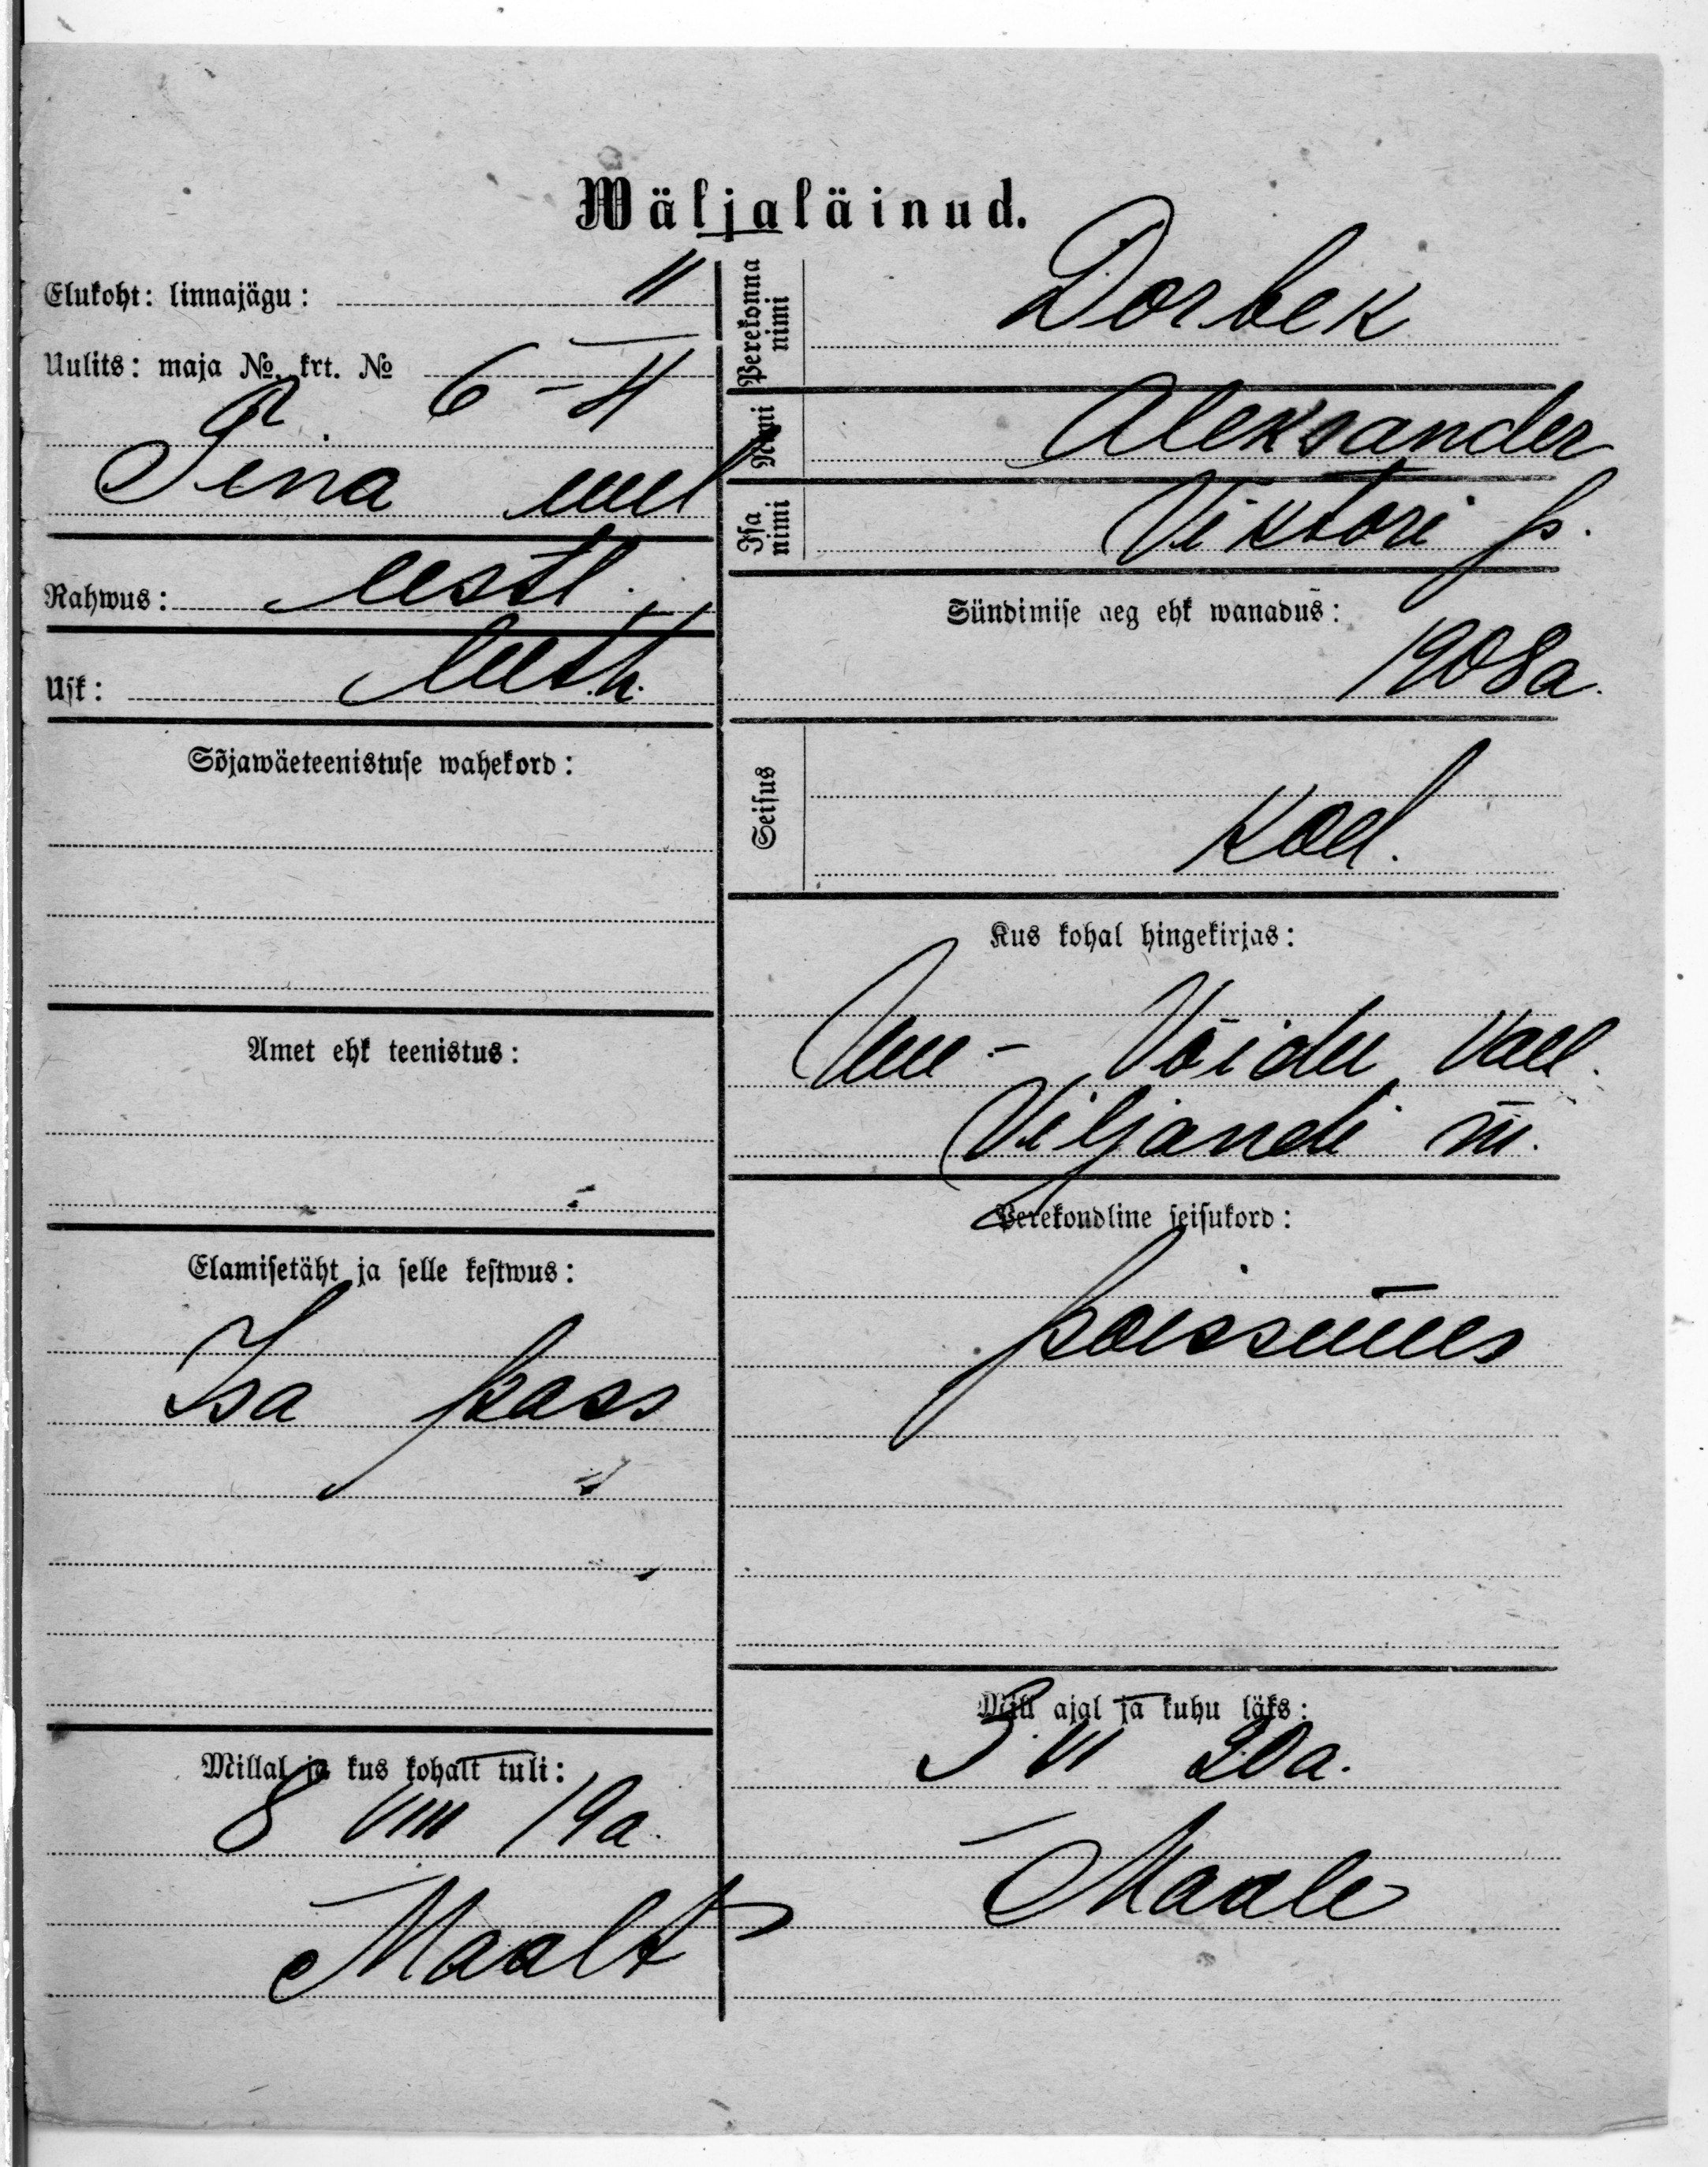 Wäljaläinud.
Elukoht: linnajägu: II
Uulits: maja №, krt. № 6 - 4
Tina uul
Rahwus: eestl.
Usk: luth.
Sõjawäeteenistuse wahekord:
Amet ehk teenistus:
Elamisetäht ja selle kestwus:
Isa pass
Millal ja kus kohalt tuli:
8 VIII 19a.
Maalt
Perekonna nimi Dorbek
Nimi Aleksander
Isa nimi Viktori p.
Sündimise aeg ehk wanadus:
1908a.
Seisus
Kod.
Kus kohal hingekirjas:
Uue - Võidu vall.
Viljandi m.
Perekondline seisukord:
poissmees
Mill ajal ja kuhu läks:
3. VI 20a.
Maale